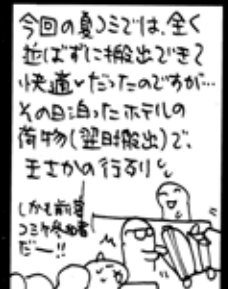 今回の夏コミでは、全く
並ばずに搬出できて
快適♥だったのですが…
その日泊ったホテルの
荷物(翌日搬出)で、
まさかの行列
しかも前導
コミケ参加者
だー!!